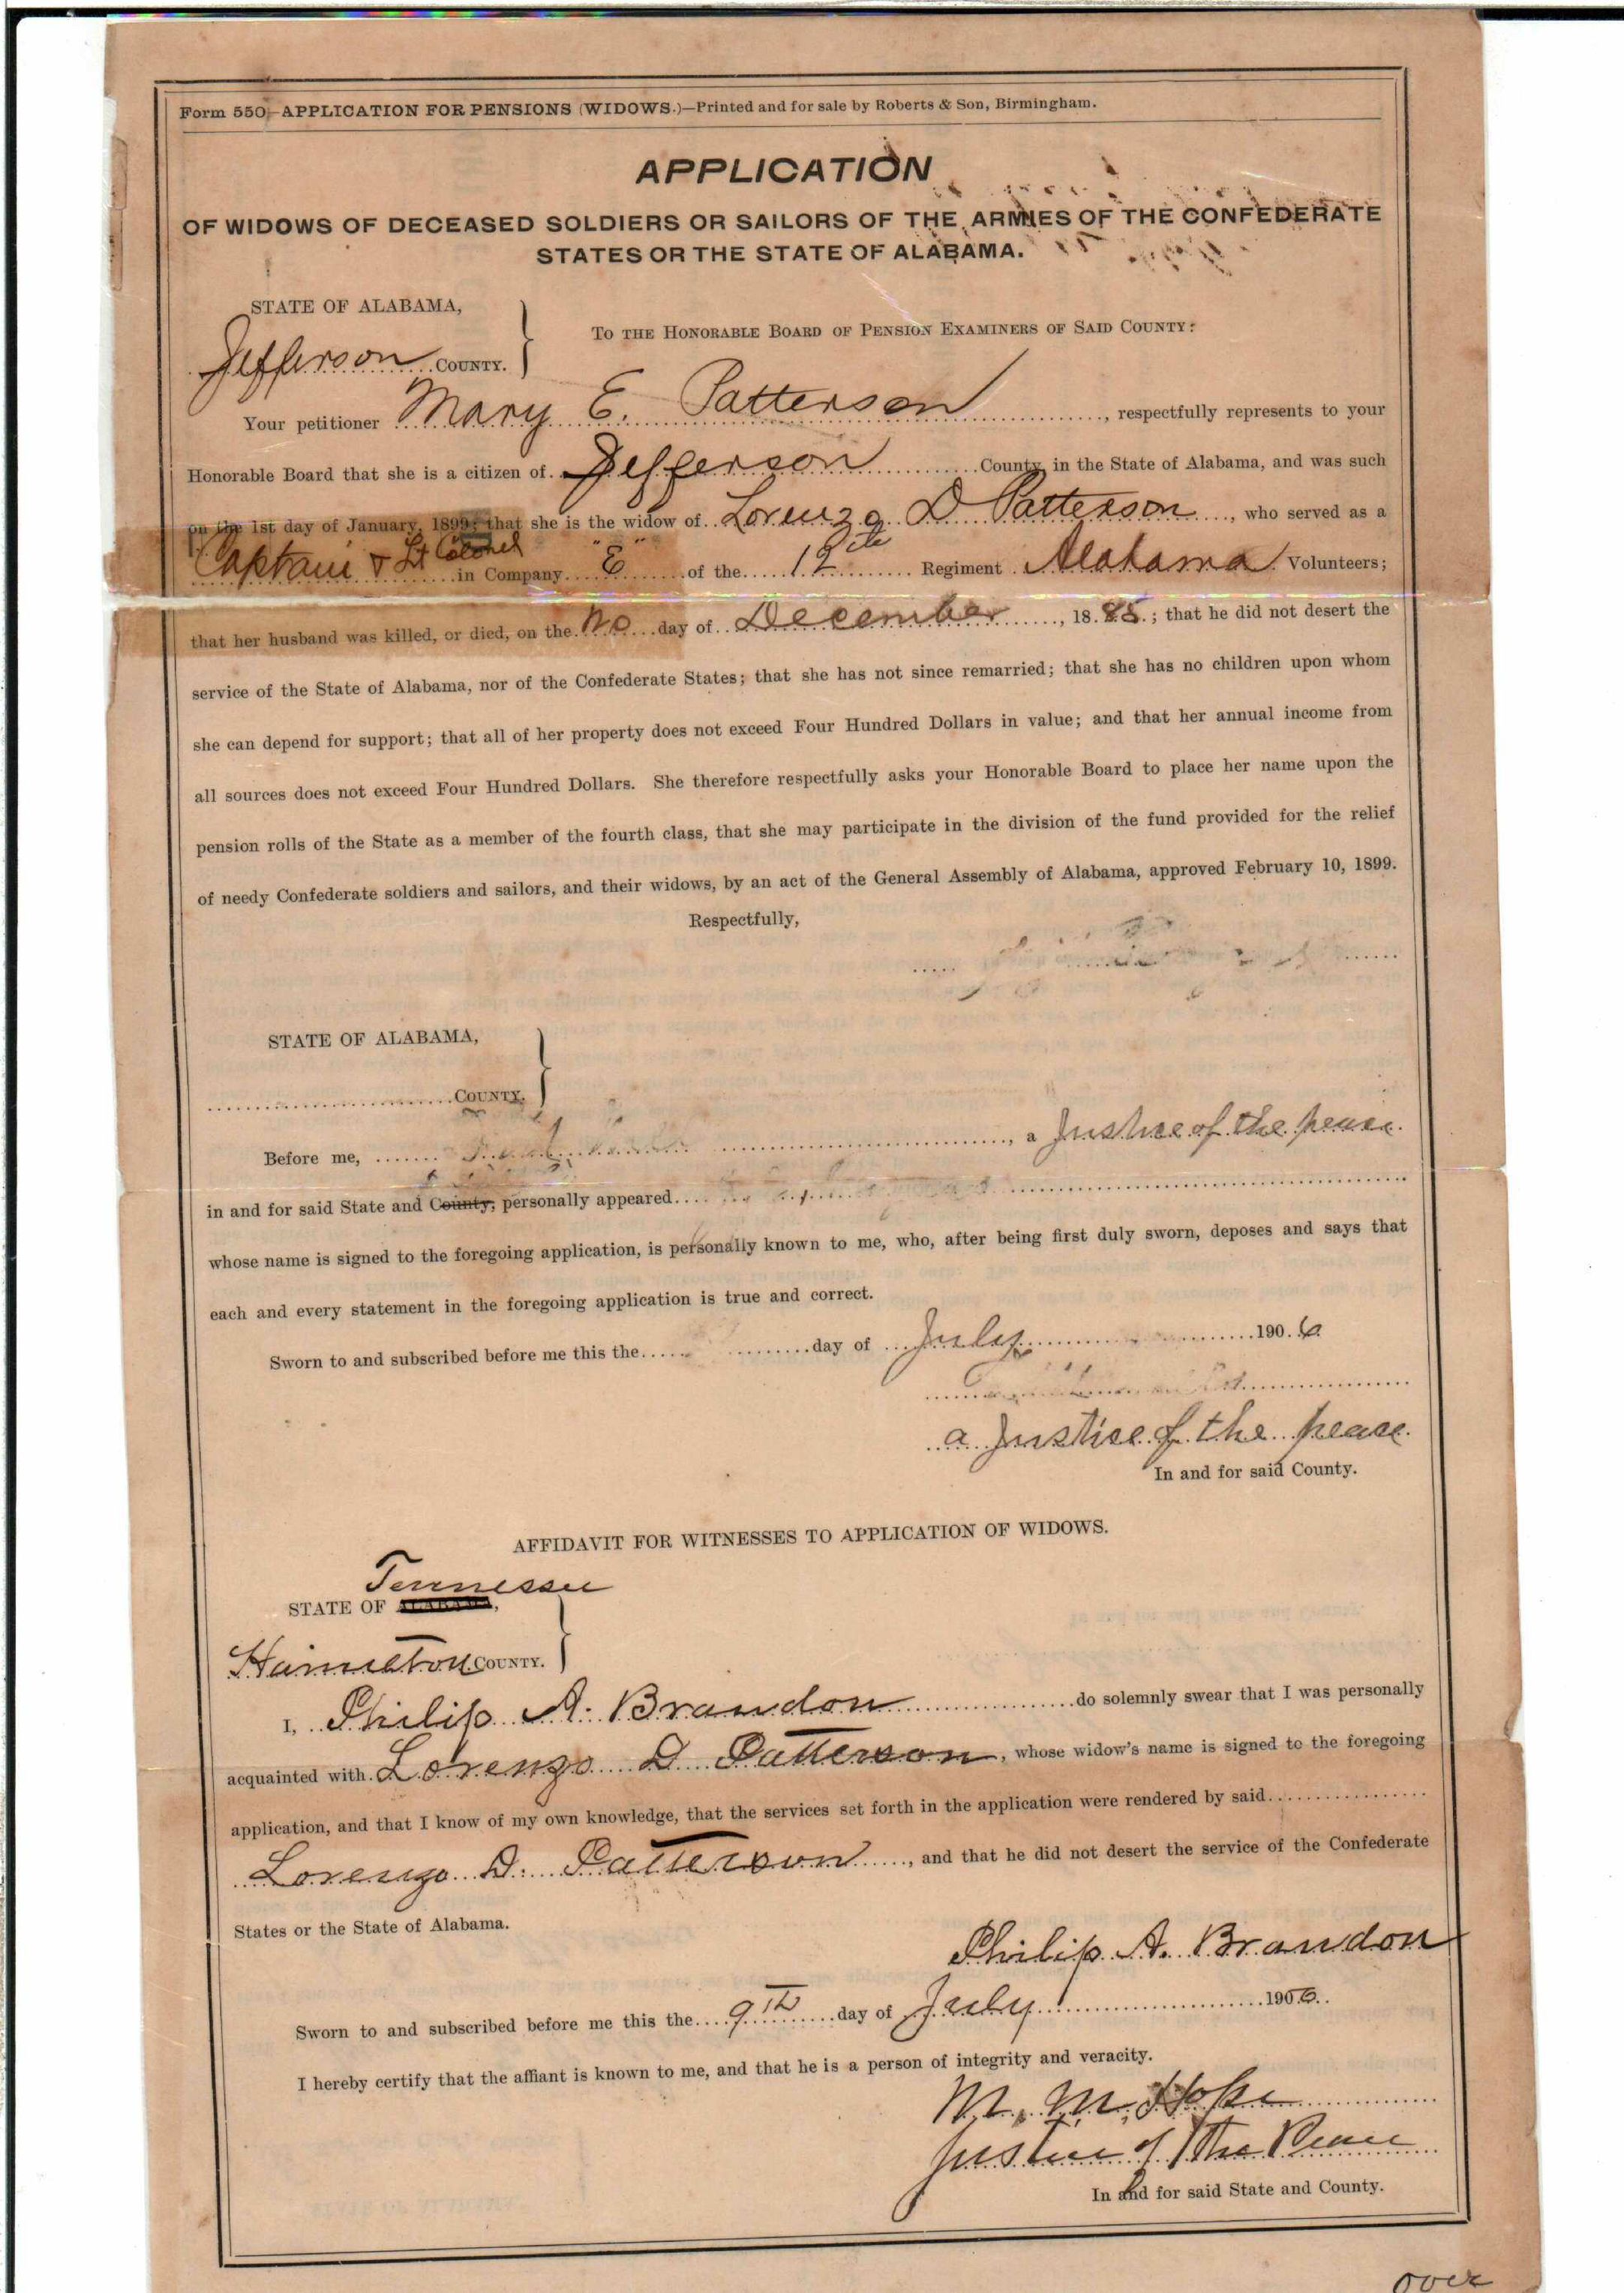 Form 550—APPLICATION FOR PENSIONS (WIDOWS.)—Printed and for sale by Roberts & Son, Birmingham.
APPLICATION
OF WIDOWS OF DECEASED SOLDIERS OR SAILORS OF THE ARMIES OF THE CONFEDERATE
STATES OR THE STATE OF ALABAMA.
STATE OF ALABAMA,
Jefferson COUNTY.
TO THE HONORABLE BOARD OF PENSION EXAMINERS OF SAID COUNTY:
Your petitioner Mary E. Patterson, respectfully represents to your
Honorable Board that she is a citizen of Jefferson County, in the State of Alabama, and was such
on the 1st day of January, 1899; that she is the widow of Lorenzo D Patterson, who served as a
Captain & Lt Colonel in Company "E" of the 12th Regiment Alabama Volunteers;
that her husband was killed, or died, on the day of December, 1885; that he did not desert the
service of the State of Alabama, nor of the Confederate States; that she has not since remarried; that she has no children upon whom
she can depend for support; that all of her property does not exceed Four Hundred Dollars in value; and that her annual income from
all sources does not exceed Four Hundred Dollars. She therefore respectfully asks your Honorable Board to place her name upon the
pension rolls of the State as a member of the fourth class, that she may participate in the division of the fund provided for the relief
of needy Confederate soldiers and sailors, and their widows, by an act of the General Assembly of Alabama, approved February 10, 1899.
Respectfully,
STATE OF ALABAMA,
COUNTY.
Before me, , a Justice of the peace
in and for said State and County, personally appeared
whose name is signed to the foregoing application, is personally known to me, who, after being first duly sworn, deposes and says that
each and every statement in the foregoing application is true and correct.
Sworn to and subscribed before me this the day of July 1906
a Justice of the peace
In and for said County.
AFFIDAVIT FOR WITNESSES TO APPLICATION OF WIDOWS.
Tennessee
STATE OF ALABAMA,
Hamilton COUNTY.
I, Philip A. Brandon do solemnly swear that I was personally
acquainted with Lorenzo D Patterson, whose widow's name is signed to the foregoing
application, and that I know of my own knowledge, that the services set forth in the application were rendered by said
Lorenzo D. Patterson, and that he did not desert the service of the Confederate
States or the State of Alabama.
Philip A. Brandon
Sworn to and subscribed before me this the 9th day of July 1906.
I hereby certify that the affiant is known to me, and that he is a person of integrity and veracity.
M. M. Hope
Justice of the Peace
In and for said State and County.
over